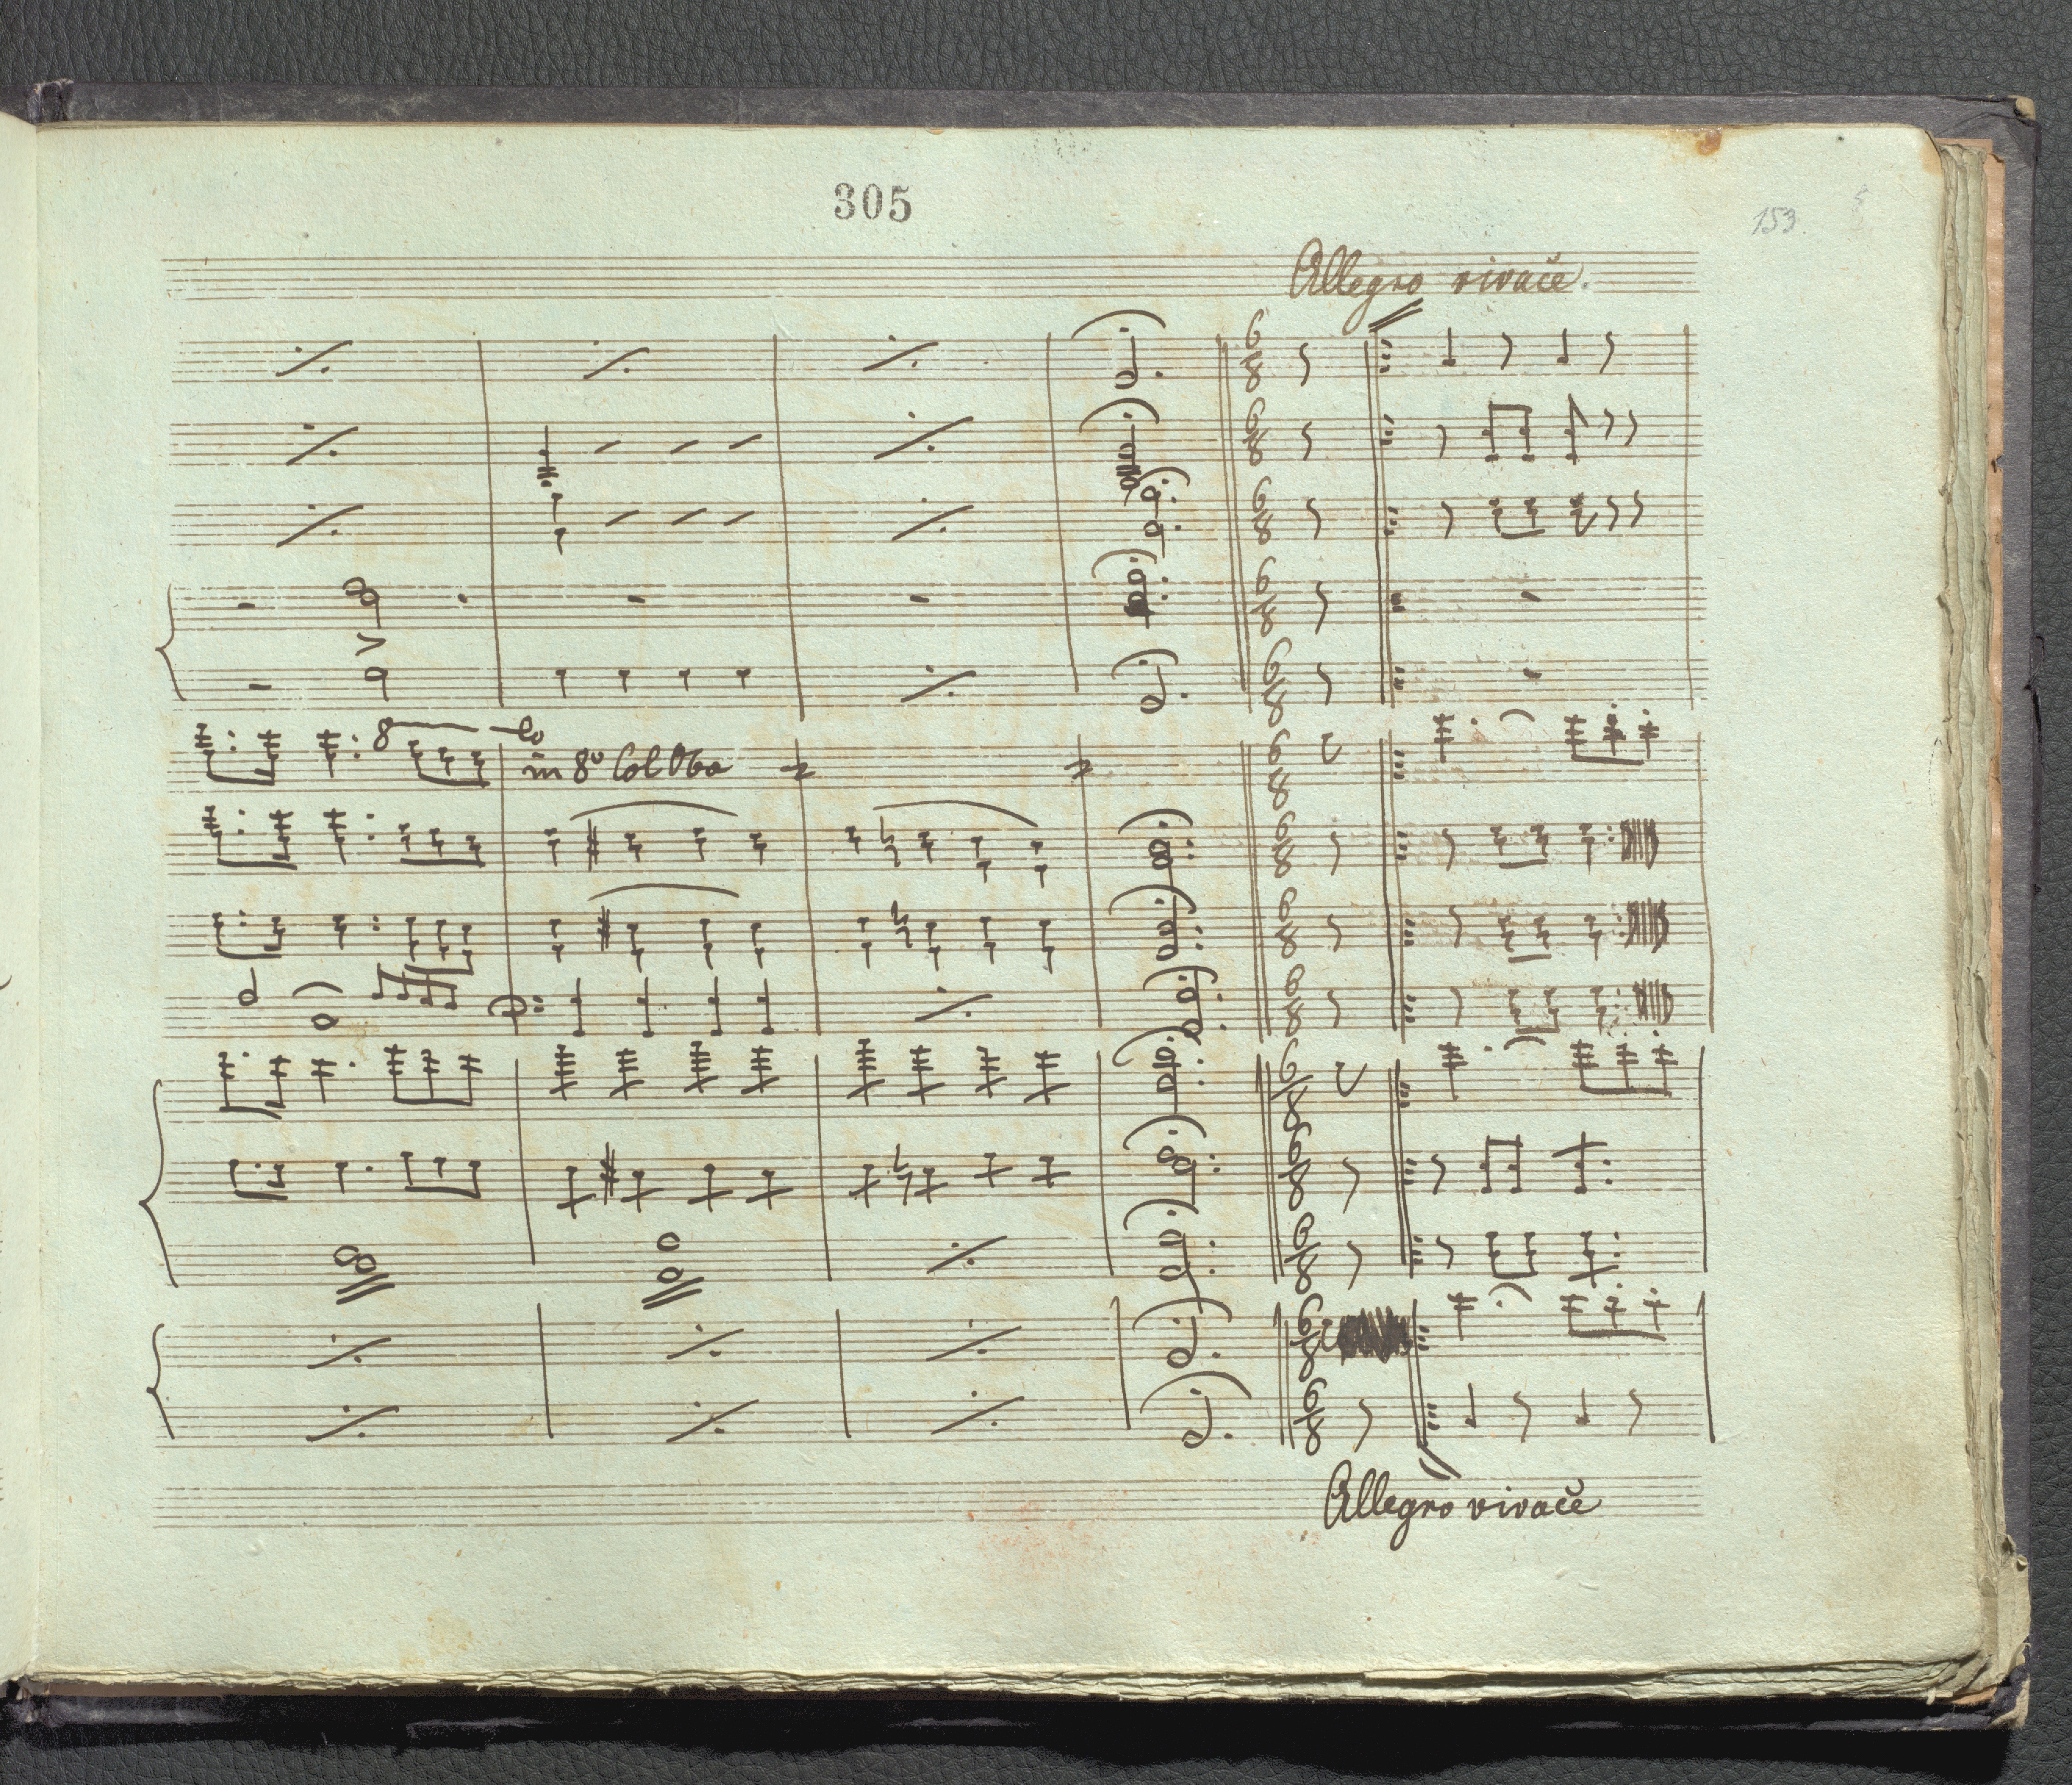 305
153.
Allegro vivače.
8 lo
in 8º Col Oboe
Allegro vivače